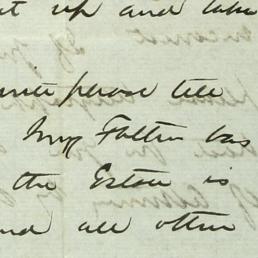 up and take
please tell
My Father has
the Estate is
and all other